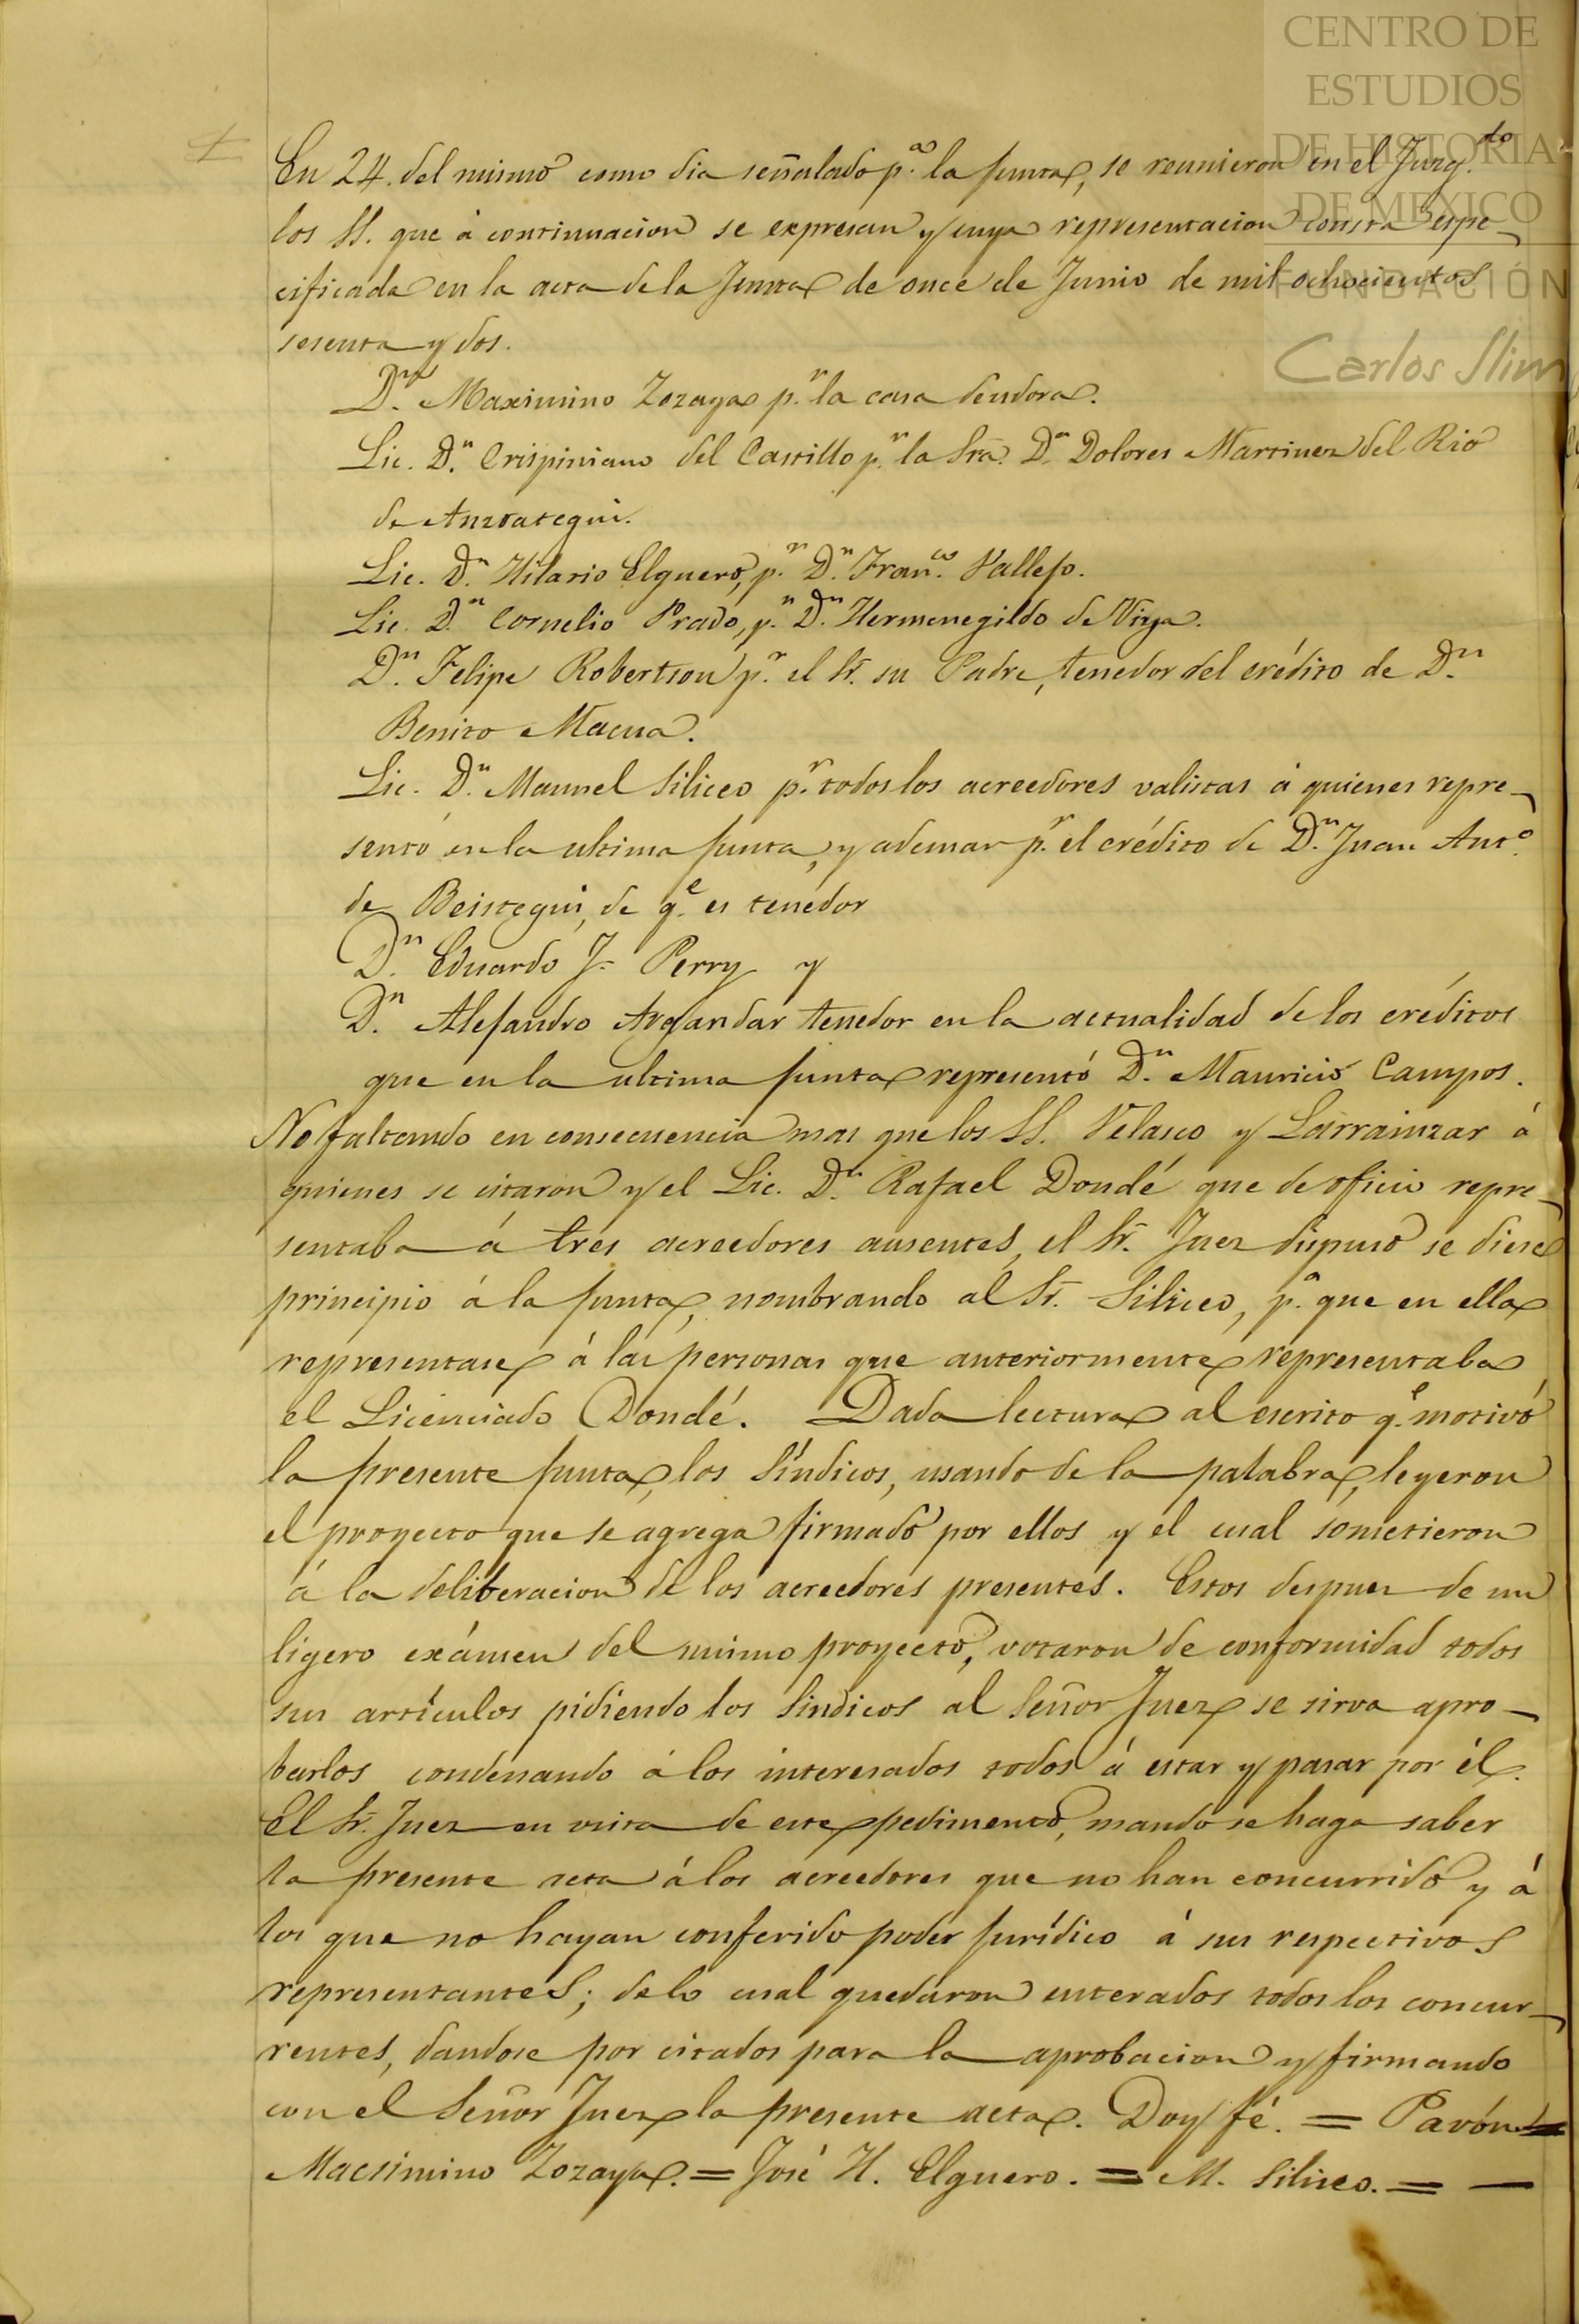 CENTRO DE
ESTUDIOS
DE HISTORIA
DE MEXICO
FUNDACIÓN
Carlos Slim
En 24. del mismo como dia señalado p.ª la junta, se reunieron en el Juzg.do
los SS. que á continuacion se expresan y cuya representacion consta espe-
cificada en la acta de la Junta de once de Junio de mil ochocientos
sesenta y dos.
D.n Maximino Zozaya p.r la casa deudora.
Lic. D.n Crispiniano del Castillo p.r la Sra. D.ª Dolores Martinez del Rio
de Anzoategui.
Lic. D.n Hilario Elguero, p.r D.n Fran.co Vallejo.
Lic. D.n Cornelio Prado, p.r D.n Hermenegildo de Viya.
D.n Felipe Robertson p.r el Sr. su Padre, tenedor del crédito de D.n
Benito Macua.
Lic. D.n Manuel Siliceo p.r todos los acreedores valistas á quienes repre-
sentó en la ultima junta, y ademas p.r el crédito de D.n Juan Ant.o
de Beistegui, de q.e es tenedor
D.n Eduardo J. Perry y
D.n Alejandro Argandar tenedor en la actualidad de los créditos
que en la ultima junta representó D.n Mauricio Campos.
No faltando en consecuencia mas que los SS. Velasco y Larrainzar á
quienes se citaron y el Lic. D.n Rafael Dondé que de oficio repre-
sentaba á tres acreedores ausentes, el Sr. Juez dispuso se diese
principio á la junta, nombrando al Sr. Siliceo, p.ª que en ella
representase á las personas que anteriormente representaba
el Licenciado Dondé. Dada lectura al escrito q.e motivó
la presente junta, los Síndicos, usando de la palabra, leyeron
el proyecto que se agrega firmado por ellos y el cual sometieron
á la deliberacion de los acreedores presentes. Estos despues de un
ligero exámen del mismo proyecto, votaron de conformidad todos
sus artículos pidiendo los Sindicos al Señor Juez se sirva apro-
barlos condenando á los interesados todos á estar y pasar por él.
El Sr. Juez en vista de este pedimento, mandó se haga saber
la presente acta á los acreedores que no han concurrido y á
los que no hayan conferido poder jurídico á sus respectivos
representantes; de lo cual quedaron enterados todos los concur-
rentes, dandose por citados para la aprobacion y firmando
con el Señor Juez la presente acta. Doy fé. = Pavón =
Macsimino Zozaya. = José H. Elguero. = M. Siliceo. = —